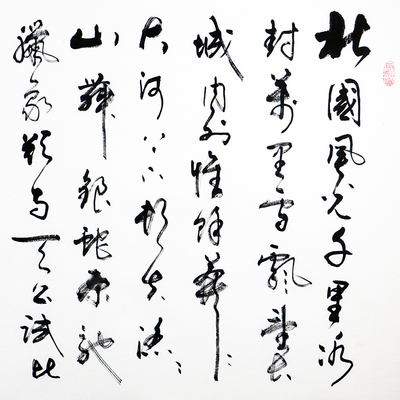 北國風光千里冰
封萬里雪飄望長
城内外惟餘莽〻
大河上下頓失滔〻
山舞銀蛇原馳
臘象欲與天公試比